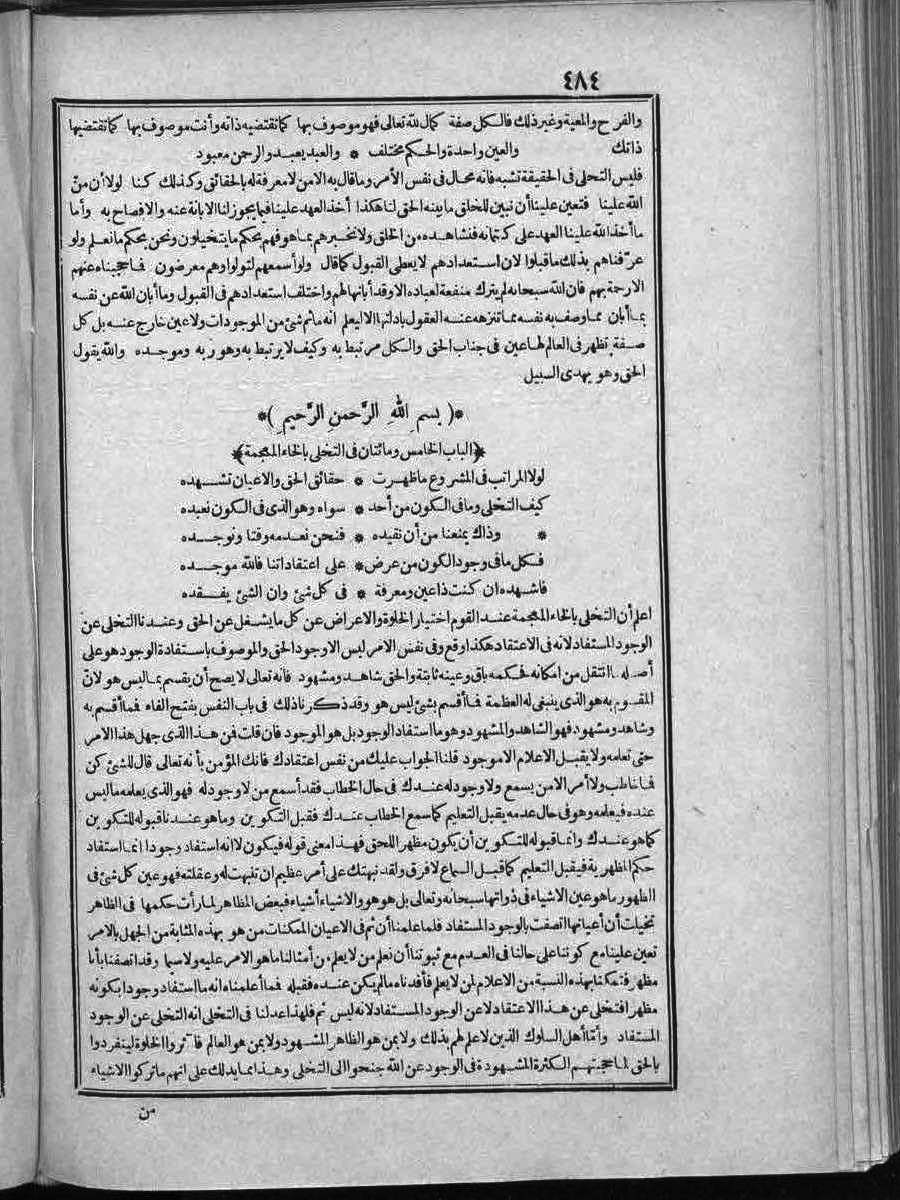 ٤٨٤
والفرح والمعية وغير ذلك فالكل صفة كمال لله تعالى فهو موصوف بها كما تقتضيه ذاته وأنت موصوف بها كما تقتضيها
ذاتك والعين واحدة والحكم مختلف * والعبد يعبد والرحمن معبود
فليس التحلى فى الحقيقة تشبه فانه محال فى نفس الأمر وما قال به الا من لا معرفة له بالحقائق وكذلك كنا لولا أن منّ
الله علينا فتعين علينا أن نبين للخلق ما بينه الحق لنا هكذا أخذ العهد علينا فيما يجوز لنا الابانة عنه والافصاح به وأما
ما أخذ الله علينا العهد على كتمانه فنشاهده من الخلق ولا نخبرهم بما هو فهم بحكم ما يتخيلون ونحن بحكم ما نعلم ولو
عرّفناهم بذلك ما قبلوا لان استعدادهم لا يعطى القبول كما قال ولو أسمعهم لتولوا وهم معرضون فما حجبناه عنهم
الا رحمة بهم فان الله سبحانه لم يترك منفعة لعباده الا وقد أبانها لهم واختلف استعدادهم فى القبول وما أبان الله عن نفسه
بما أبان مما وصف به نفسه مما تنزهه عنه العقول بأدلتها الا ليعلم انه ما ثم شئ من الموجودات ولا عين خارج عنه بل كل
صفة تظهر فى العالم لها عين فى جناب الحق والكل مرتبط به وكيف لا يرتبط به وهو ربه وموجده والله يقول
الحق وهو يهدى السبيل
*( بسم الله الرَّحمن الرَّحيم )*
﴿الباب الخامس ومائتان فى التخلى بالخاء المعجمة﴾
لولا المراتب فى المشروع ما ظهرت * حقائق الحق والاعيان تشهده
كيف التخلى وما فى الكون من أحد * سواه وهو الذى فى الكون نعبده
* وذاك يمنعنا من أن نقيده * فنحن نعدمه وقتا ونوجده
فكل ما فى وجود الكون من عرض * على اعتقاداتنا فالله موجده
فاشهده ان كنت ذا عين ومعرفة * فى كل شئ وان الشئ يفقده
اعلم أن التخلى بالخاء المعجمة عند القوم اختيار الخلوة والاعراض عن كل ما يشغل عن الحق وعندنا التخلى عن
الوجود المستفاد لانه فى الاعتقاد هكذا وقع وفى نفس الامر ليس الا وجود الحق والموصوف باستفادة الوجود هو على
أصله ما انتقل من امكانه فحكمه باق وعينه ثابتة والحق شاهد ومشهود فانه تعالى لا يصح أن يقسم بما ليس هو لانّ
المقسوم به هو الذى ينبغى له العظمة فما أقسم بشئ ليس هو وقد ذكرنا ذلك فى باب النفس بفتح الفاء فمما أقسم به
وشاهد ومشهود فهو الشاهد والمشهود وهو ما استفاد الوجود بل هو الموجود فان قلت فمن هذا الذى جهل هذا الامر
حتى تعلمه ولا يقبل الاعلام الا موجود قلنا الجواب عليك من نفس اعتقادك فانك المؤمن بأنه تعالى قال للشئ كن
فما خاطب ولا أمر الا من يسمع ولا وجود له عندك فى حال الخطاب فقد أسمع من لا وجود له فهو الذى يعلمه ما ليس
عنده فيعلمه وهو فى حال عدمه يقبل التعليم كما سمع الخطاب عندك فقبل التكوين وما هو عندنا قبوله للتكوين
كما هو عندك وانما قبوله للتكوين أن يكون مظهرا للحق فهذا معنى قوله فيكون لا انه استفاد وجودا انما استفاد
حكم المظهرية فيقبل التعليم كما قبل السماع لا فرق ولقد نبهتك على أمر عظيم ان تنبهت له وعقلته فهو عين كل شئ فى
الظهور ما هو عين الاشياء فى ذواتها سبحانه وتعالى بل هو هو والاشياء أشياء فبعض المظاهر لما رأت حكمها فى الظاهر
تخيلت أن أعيانها اتصفت بالوجود المستفاد فلما علمنا أن ثم فى الاعيان الممكنات من هو بهذه المثابة من الجهل بالامر
تعين علينا مع كوننا على حالنا فى العدم مع ثبوتنا أن نعلم من لا يعلم من أمثالنا ما هو الامر عليه ولا سيما وقد اتصفنا بأنا
مظهر فتمكنا بهذه النسبة من الاعلام لمن لا يعلم فأفدناه ما لم يكن عنده فقبله فمما أعلمناه انه ما استفاد وجودا بكونه
مظهرا فتخلى عن هذا الاعتقاد لا عن الوجود المستفاد لانه ليس ثم فلهذا عدلنا فى التخلى انه التخلى عن الوجود
المستفاد وأمّا أهل السلوك الذين لا علم لهم بذلك ولا بمن هو الظاهر المشهود ولا بمن هو العالم فآثروا الخلوة لينفردوا
بالحق لما حجبتهم الكثرة المشهودة فى الوجود عن الله جنحوا الى التخلى وهذا مما يدلك على انهم ما تركوا الاشياء
من